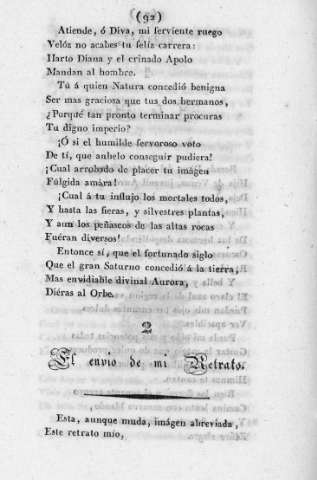 (92)
Atiende, ó Diva, mi ferviente ruego
Velóz no acabes tu felíz carrera:
Harto Diana y el crinado Apolo
Mandan al hombre.
Tú á quien Natura concedió benigna
Ser mas graciosa que tus dos hermanos,
¿Porqué tan pronto terminar procuras
Tu digno imperio?
¡Ó si el humilde fervoroso voto
De tí, que anhelo conseguir pudiera!
¡Cual arrobado de placer tu imágen
Fúlgida amára!
¡Cual á tu influjo los mortales todos,
Y hasta las fieras, y silvestres plantas,
Y aun los peñascos de las altas rocas
Fuéran diversos!
Entonce sí, que el fortunado siglo
Que el gran Saturno concedió á la tierra,
Mas envidiable divinal Aurora,
Diéras al Orbe.
2
El envio de mi Retrato.
Esta, aunque muda, imágen abreviada,
Este retrato mio,